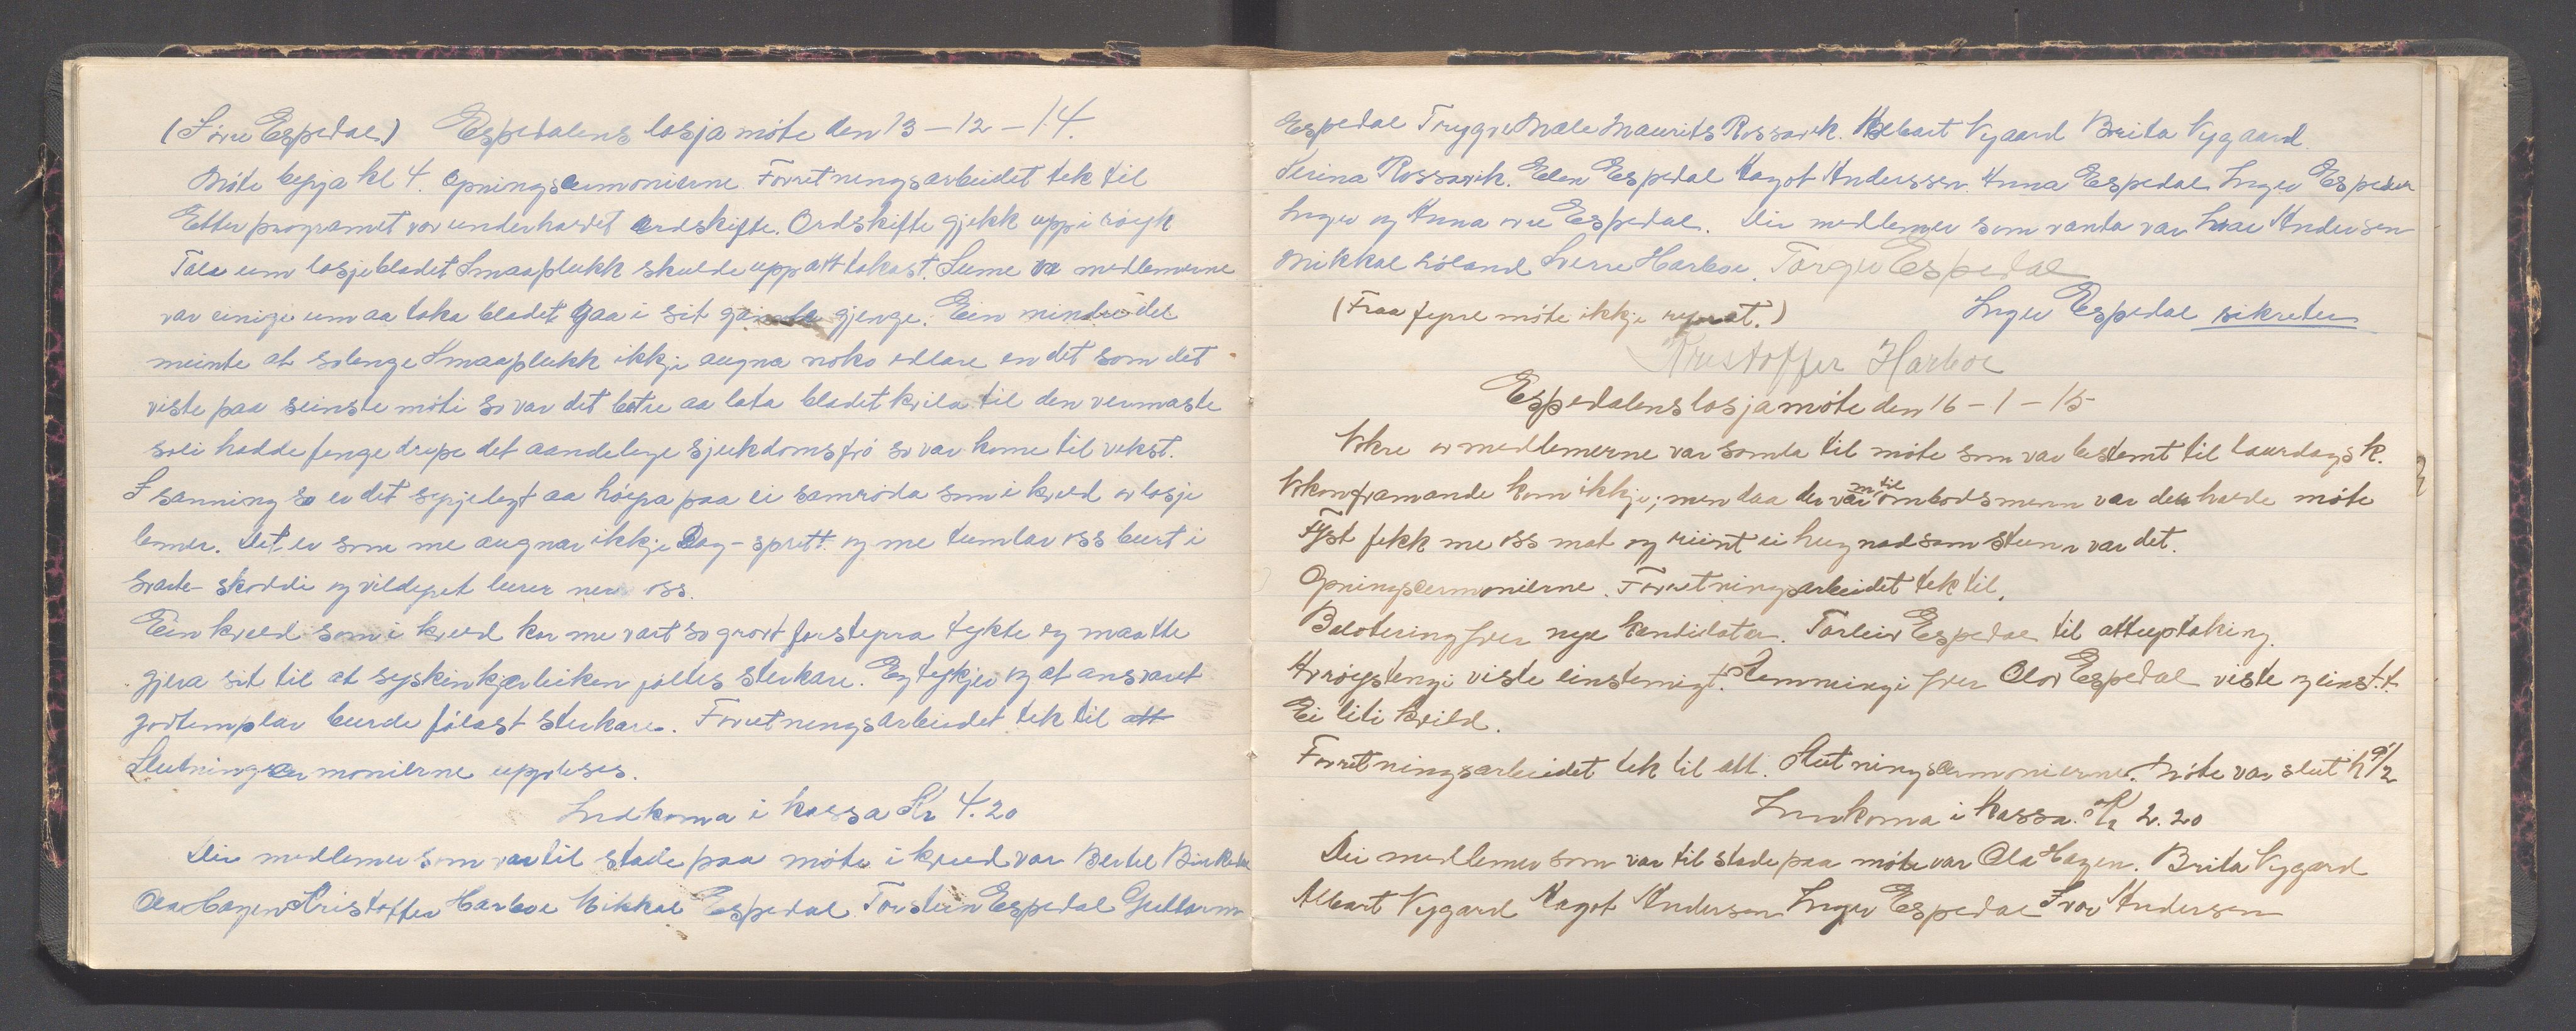 (Øvre Espedal) Espedalens losja møte den 13-12-14.
Møte byrja kl 4. Opningscermonierne. Forretningsarbeidet tek til
Etter programet var underhaldet ordskifte. Ordskifte gjekk upp i røyk
Tala um losjebladet Smaaplukk skulde upp att takast. Sume va medlemerne
var einige um aa taka bladet gaa i sit gamle gjenge. Ein mindre del
meinte at solenge Smaaplukk ikkje augna noko edlare en det som det
viste paa seinste møti so var det betre aa lata bladet kvila til den varmaste
soli hadde fenge drepe det aandelege sjukdomsfrø so var kome til vekst.
I sanning so er det sygjelegt aa høyra paa ei samrøda som i kveld av losje
lemer. Det er som me augnar ikkje Dag-sprett og me tumlar oss burt i
svarte-skoddi og vildegret lurer ner oss.
Ein kveld som i kveld kor me vart so grovt forstyrra tykte eg maatte
gjera sit til at syskinkjærleiken føltes sterkare. Eg tykjer og at ansvaret
godtemplar burde følast sterkare. Forretningsarbeidet tek til att
Slutningscermonierne upplæses.
Indkoma i kassa Kr 4.20
Dei medlemer som var til stade paa møte i kveld var Bertel Birkedal
Ola Hagen Kristoffer Harboe Mikkal Espedal Torstein Espedal Guttorm
Espedal Trygve Mæle Maurits Rossavik. Albart Vygaard Brita Vygaard.
Serina Rossavik. Elen Espedal Kagot Anderssen. Anna Espedal Inger Espedal
Inger og Anna øvre Espedal. Dei medlemer som vanta var Ivar Andersen
Mikkal Løland Sverre Harboe. Torger Espedal
(Fraa fyrre møte ikkje upprat.) Inger Espedal sikreter
Kristoffer Harboe
Espedalens losja møte den 16-1-15
Nokre av medlemerne var samla til møte som var bestemt til laurdags k.
Nokon framande kom ikkje; men daa der var m til ombodsmenn var den halde møte
Fyst fekk me oss mat og riint ei hugnadsam stunn var det.
Opningscermonierne. Forretningsarbeidet tek til.
Balotering yver nye kandidatar. Torleiv Espedal til attupptaking.
Avrøystengi viste einstemigt. Stemmingi yver Olav Espedal viste og einst.t.
Ei liti kvild.
Forretningsarbeidet tek til att. Slutningscermonierne. Møte var slut kl 9 1/2
Innkoma i kassa. Kr 2.20
Dei medlemer som var til stade paa møte var Ola Hagen. Brita Vygard
Albart Vygard Kagot Andersen Inger Espedal Ivar Andersen